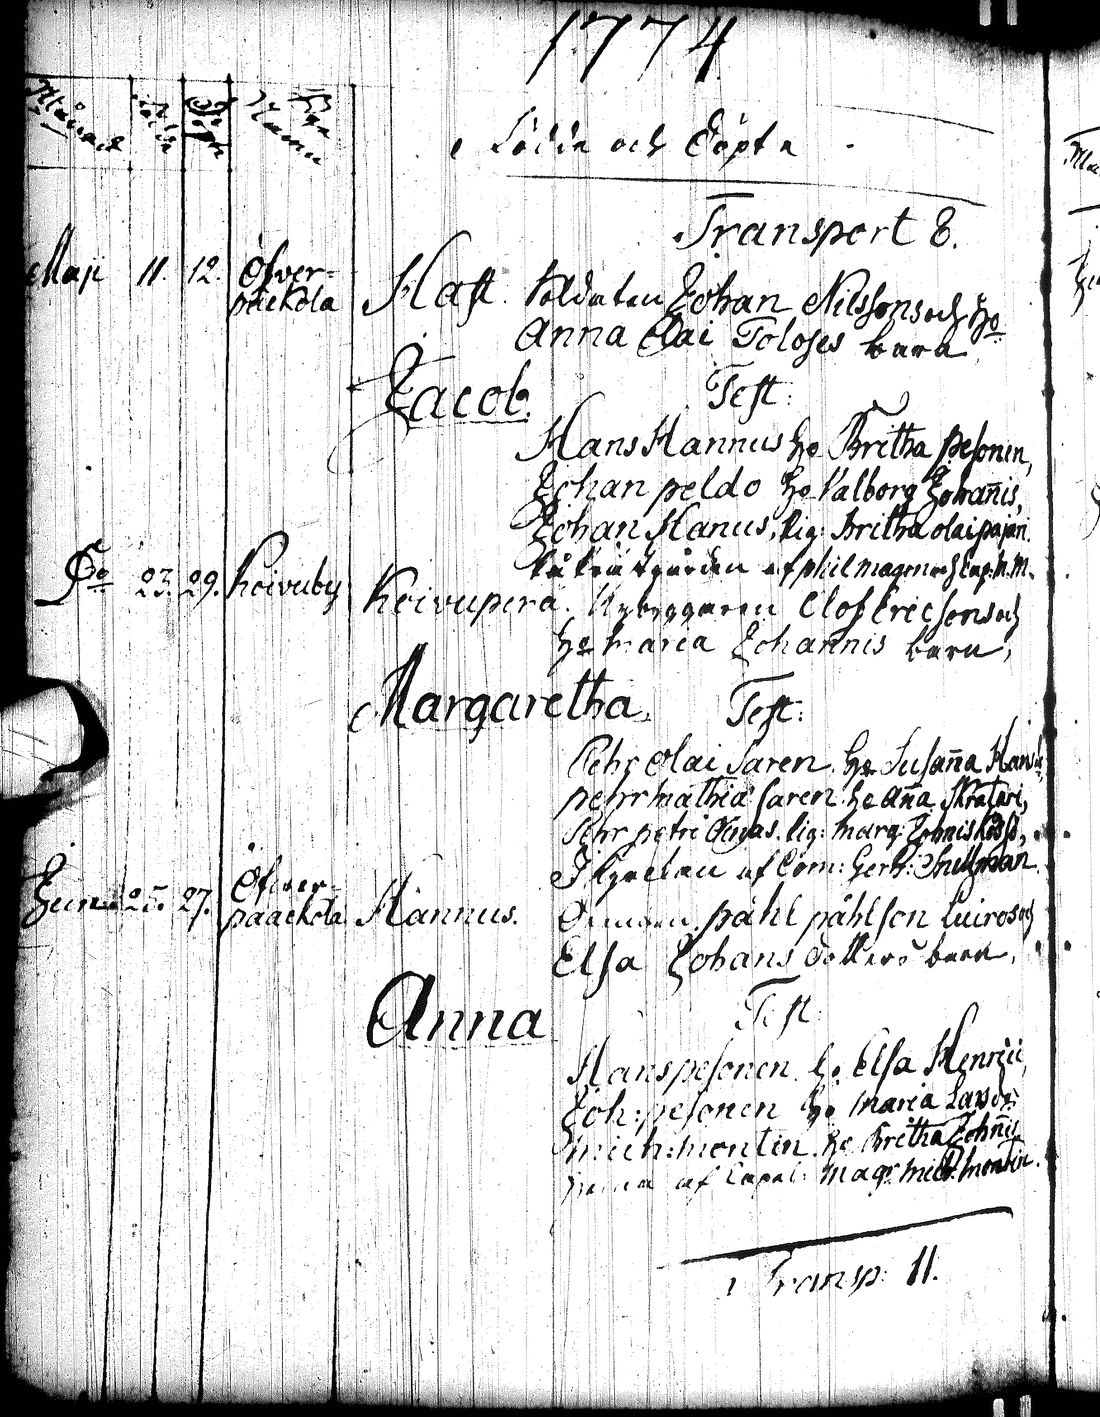 1774
Månad
Födde och Döpte
Transport 8.
Maji 11. 12. Öfver-
päekola Haft. Soldaten Johan Nilsson och h:o
Anna Olai Toloses barn
Jacob. Test:
Hans Hannus h:o Britha pesonen,
Johan peldo h:o Valborg Johañis,
Johan Hanus, pig: Britha olai pajari.
D:o 23. 29. Koivuby Koivupera. Nybyggaren Olof Ericson och
h:o Maria Johannis barn,
Margaretha, Test:
Pehr Olai Saren h:o Susaña Hans
pehr mathiæ Saren h:o aña
Pehr petri pig: marg:
af Com:
Junii 25. 27. Öfver-
paaekola Hannus. påhl påhlson Luiro och
Elsa Johans dotters barn,
Anna Test:
Hans pesonen h:o Elsa Henrici,
Joh: pesonen h:o Maria Lars d:r
mich: montin h:o Britha Johñis
af Capel: mag: mich: montin.
Transp: 11.